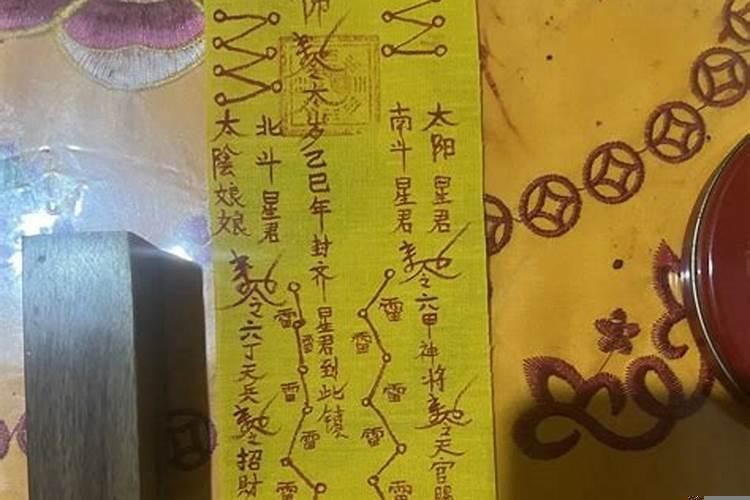 太陽星君
南斗星君
令六甲神将
令天官賜
雷
雷
雷
雷
雷
師
令太岁己巳年封齐星君到此镇
北斗星君
太陰娘娘
令六丁天兵
令招財
雷
雷
雷
雷
雷